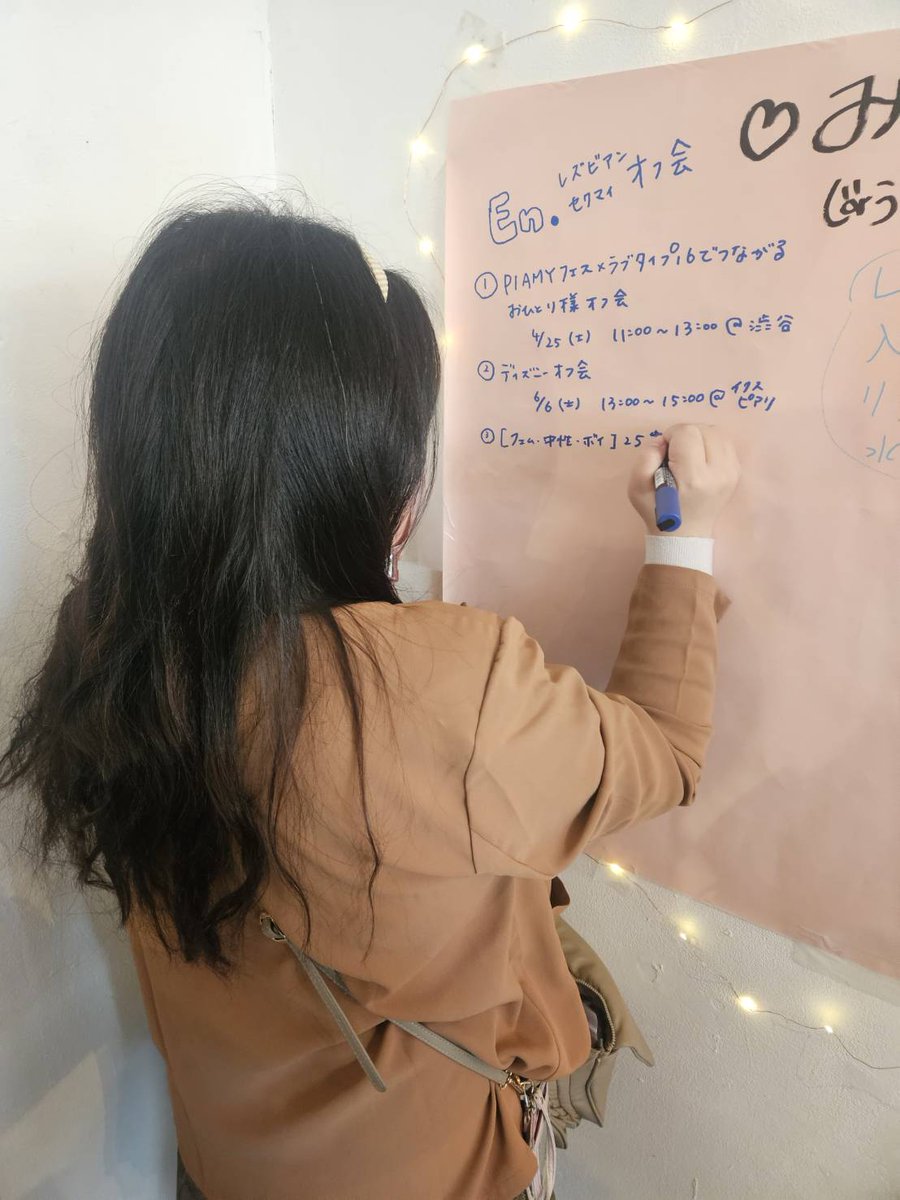 En. レズビアン
セクマイ オフ会
① PIAMYフェス×ラブタイプ16でつながる
おひとり様オフ会
4/25(土) 11:00~13:00@渋谷
② ディズニーオフ会
6/6(土) 13:00~15:00@イクス
ピアリ
③ [フェム・中性・ボイ] 25
♡み